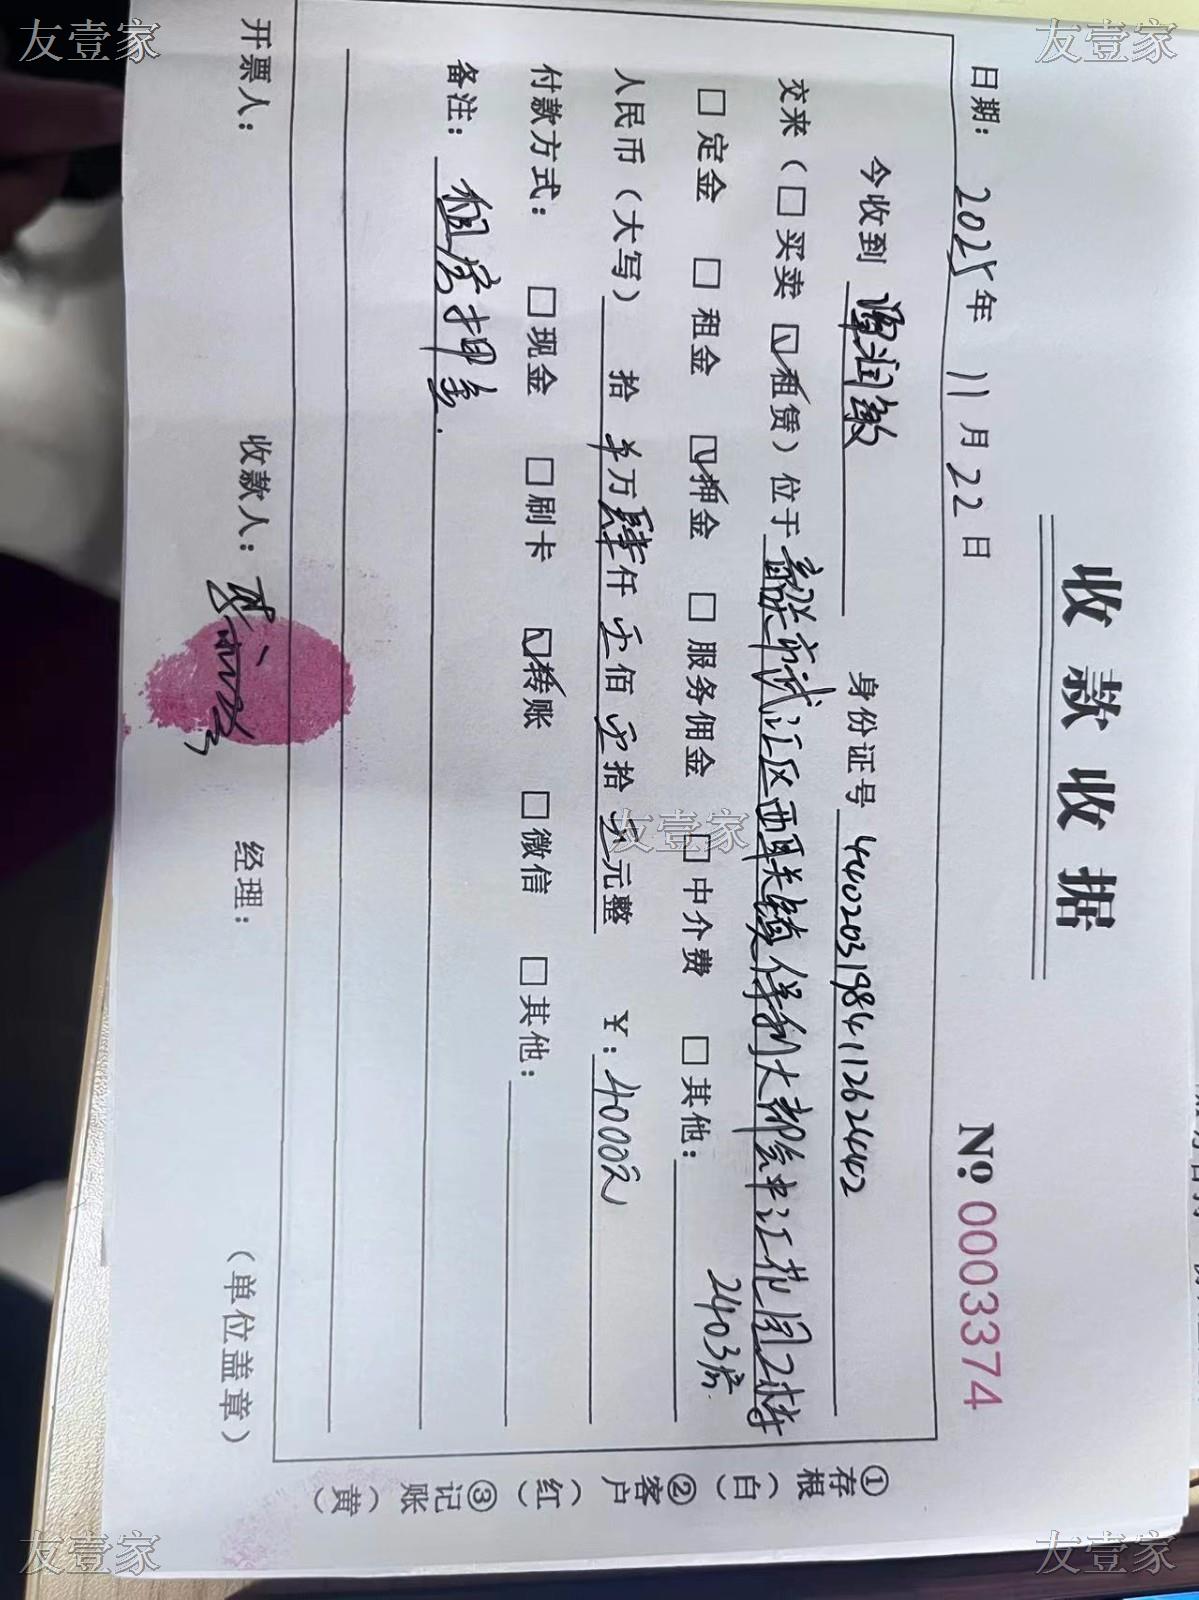 收款收据
No. 0003374
日期: 2025年 11月 22日
今收到 身份证号 440203198411262442
交来（□买卖 ☑租赁）位于 韶关市武江区西联镇保利大都会申江花园2栋
2403房.
□定金 □租金 ☑押金 □服务佣金 □中介费 □其他:
人民币（大写） 拾 万肆仟 佰 拾 元整 ￥: 4000元
付款方式: □现金 □刷卡 ☑转账 □微信 □其他:
备注: 租房押金.
开票人: 收款人: 经理: （单位盖章）
①存根（白） ②客户（红） ③记账（黄）
友壹家
友壹家
友壹家
友壹家
友壹家